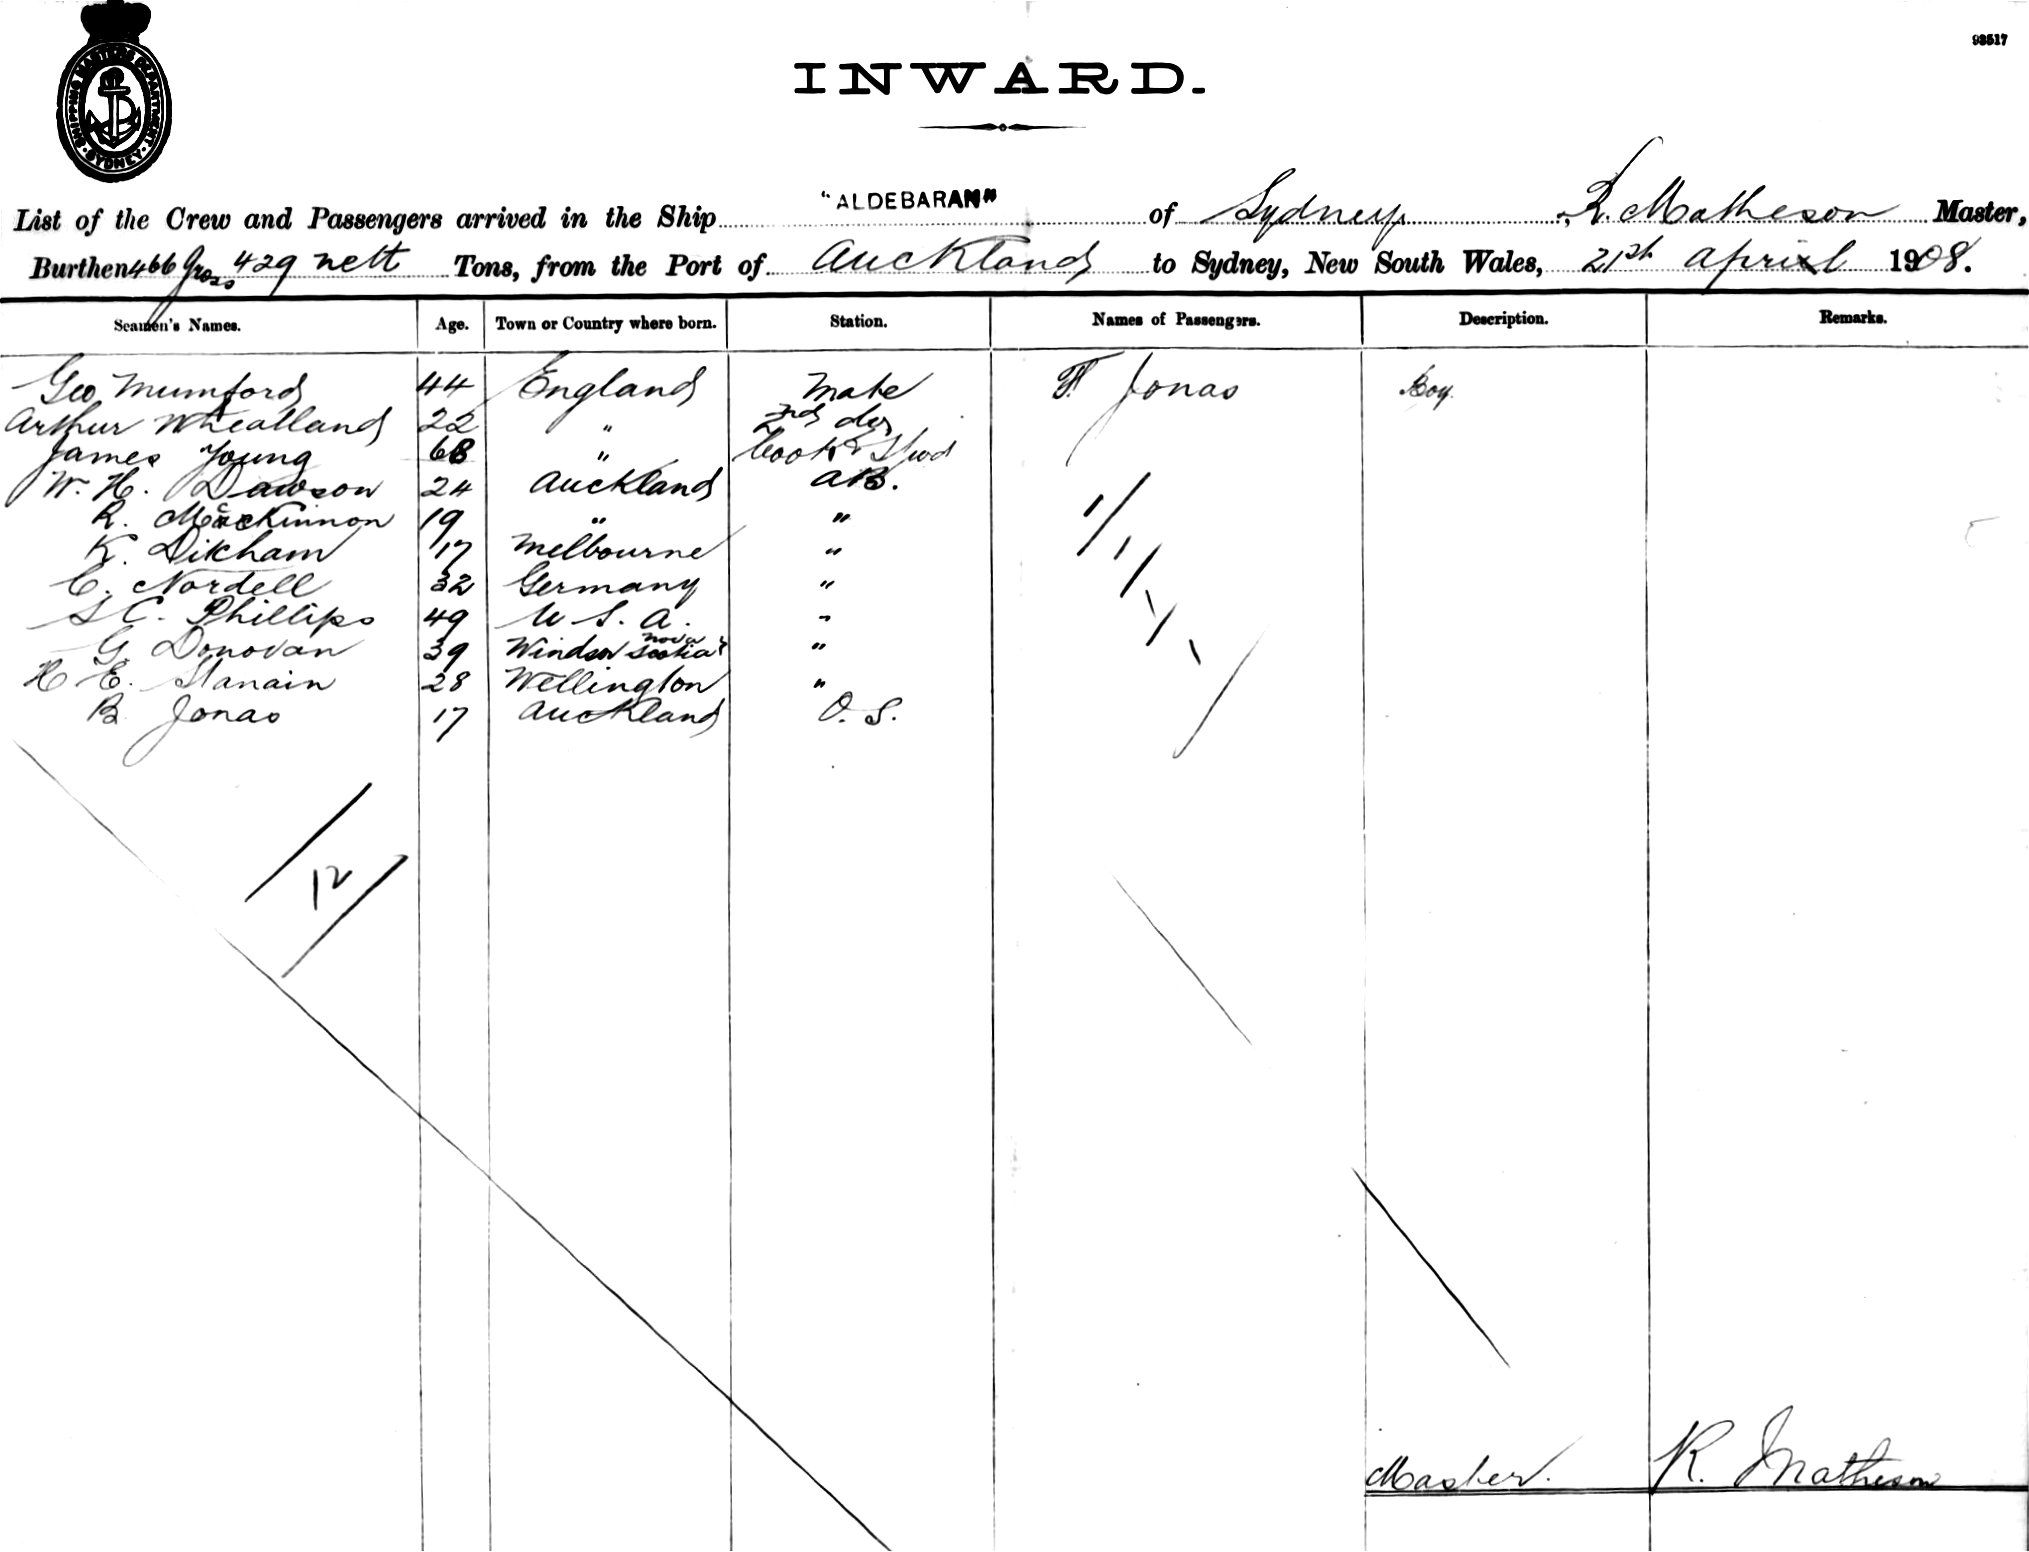 93517
SHIPPING MASTERS DEPARTMENT
SYDNEY
INWARD.
List of the Crew and Passengers arrived in the Ship "ALDEBARAN" of Sydney, R. Matheson Master,
Burthen 466 Gross 429 nett Tons, from the Port of Auckland to Sydney, New South Wales, 21st April 1908.
Seamen's Names. Age. Town or Country where born. Station. Names of Passengers. Description. Remarks.
Geo Mumford 44 England Mate F. Jonas Boy.
Arthur Wheatland 22 " 2nd do
James Young 68 " Cook & Stwd
W. H. Dawson 24 Auckland AB.
R. MacKinnon 19 " "
K. Dikham 17 Melbourne "
C. Nordell 32 Germany "
S C. Phillips 49 U. S. A. "
G. Donovan 39 Windsor Nova Scotia "
H E. Stanain 28 Wellington "
B Jonas 17 Auckland O. S.
12
Master. R. Matheson